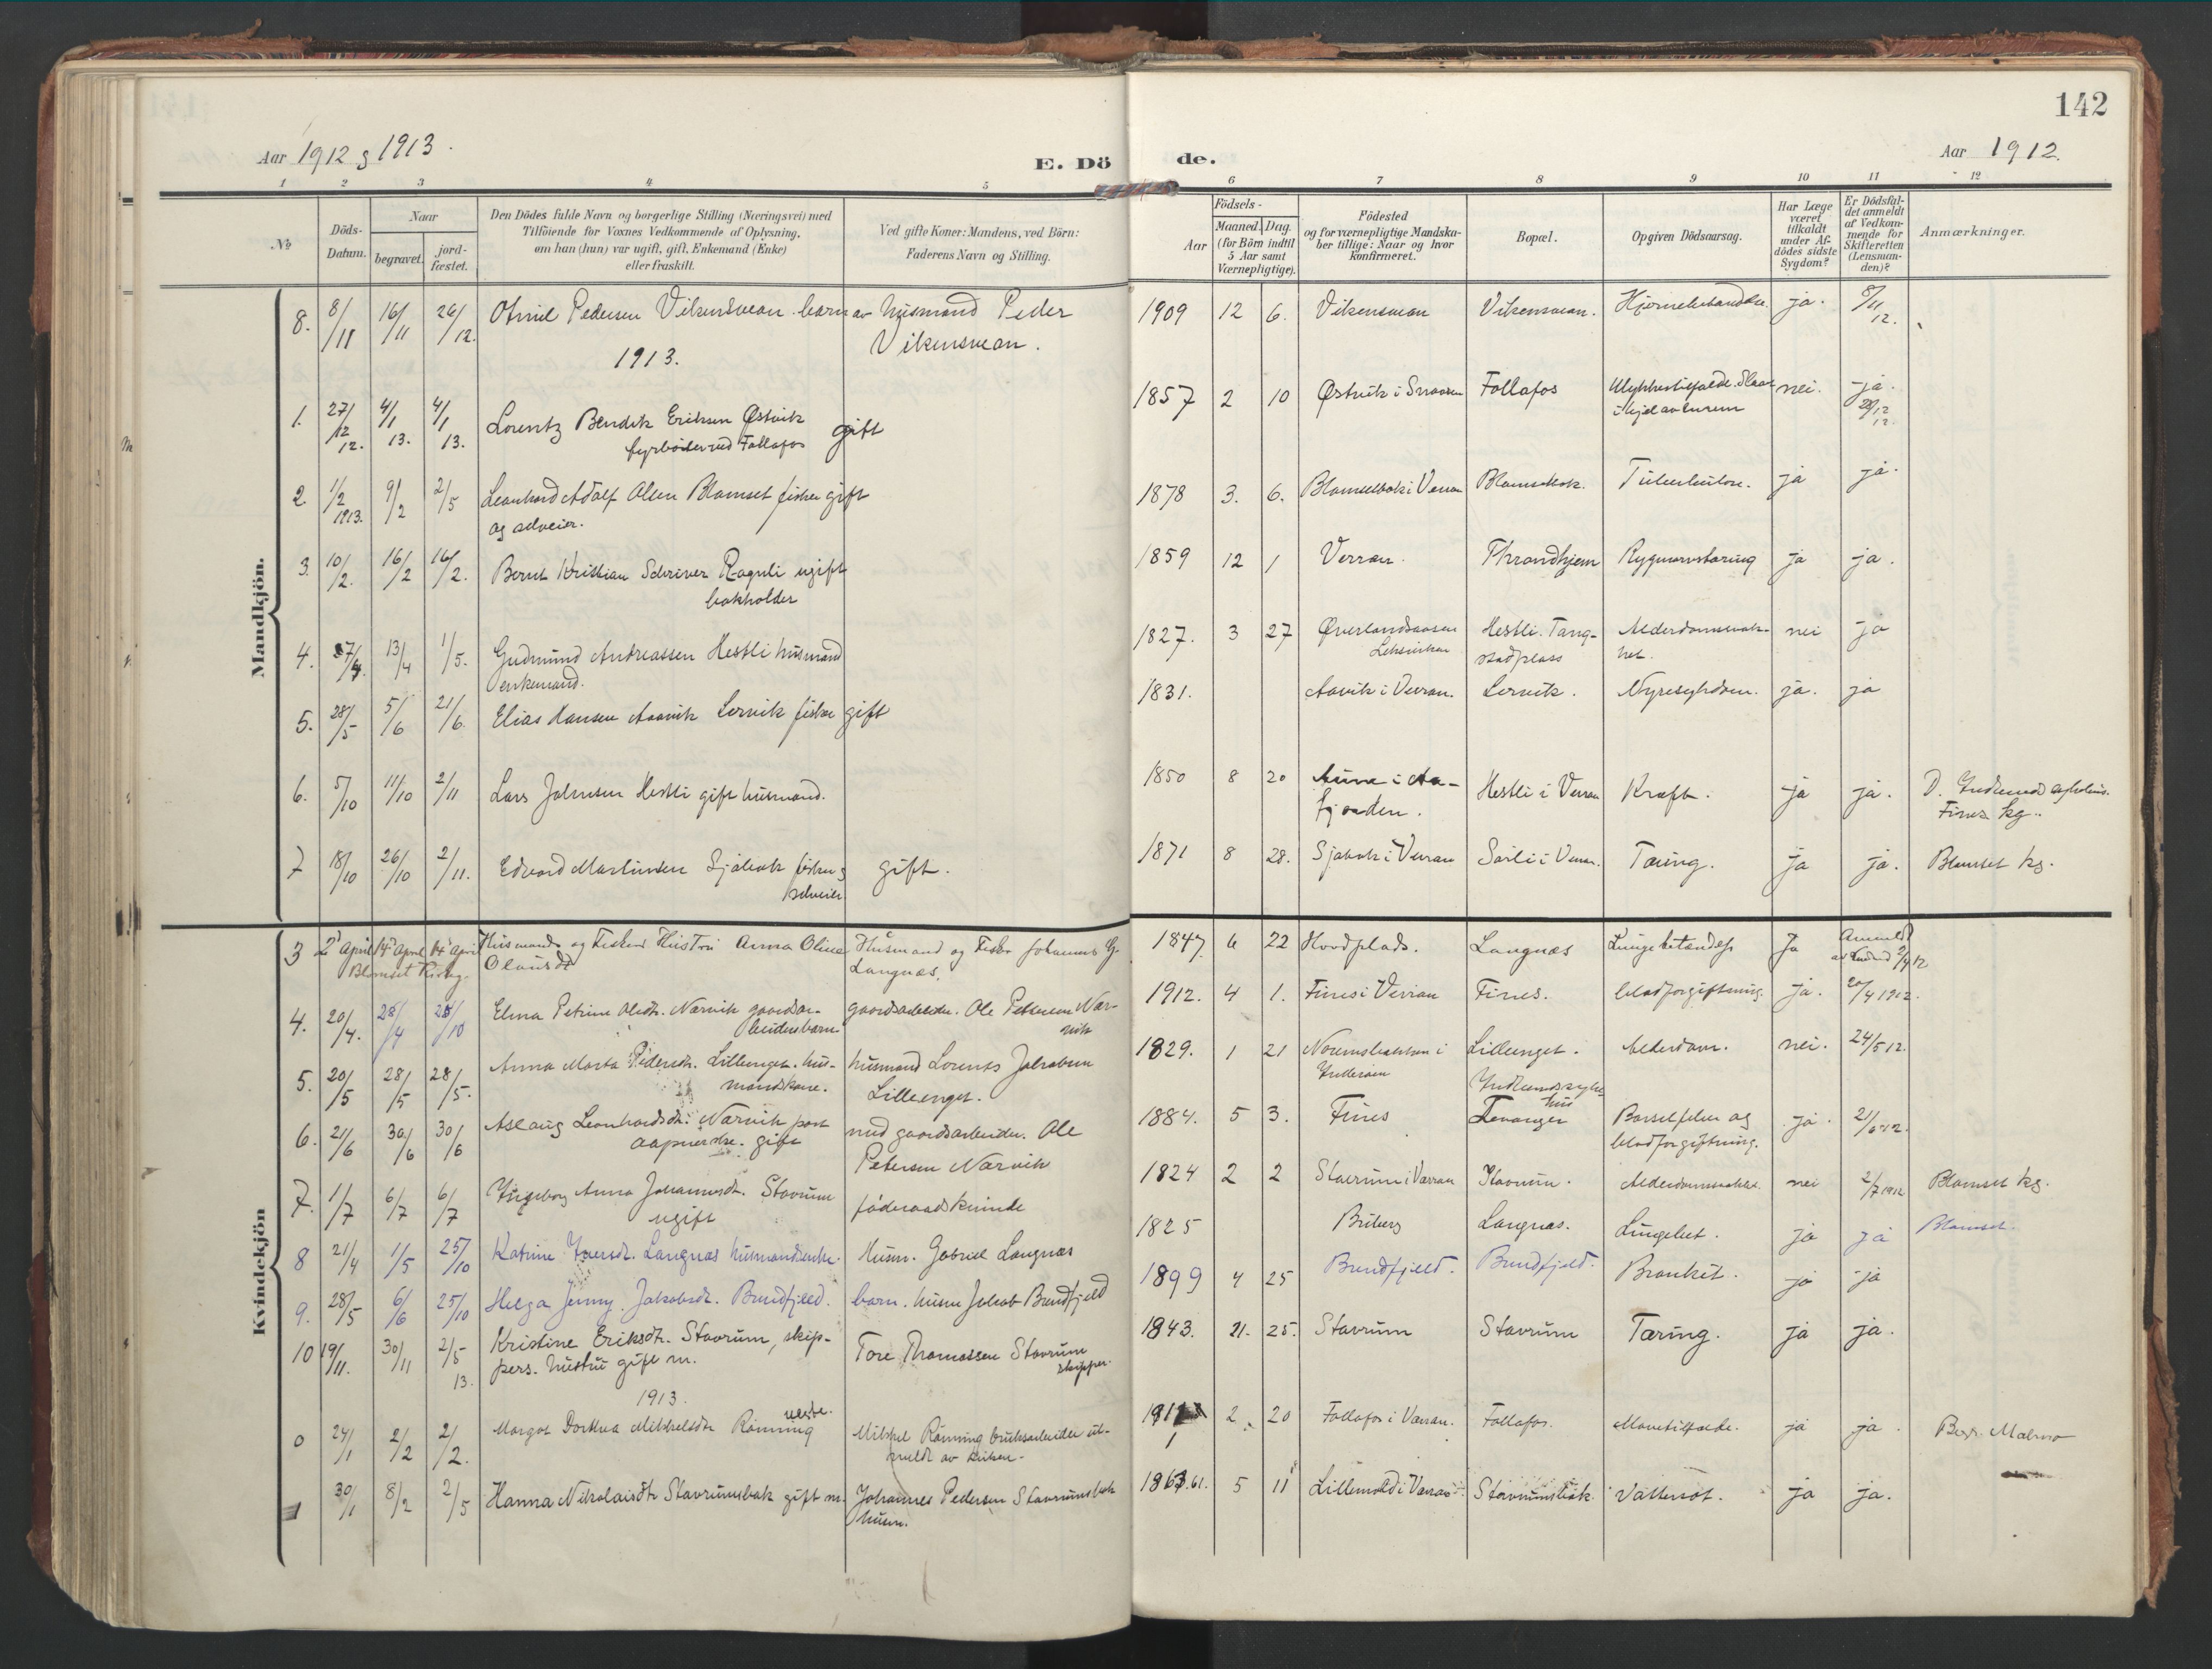 142
Aar 1912 & 1913.
E. Döde.
Aar 1912.
1 2 3 4 5 6 7 8 9 10 11 12
No
Döds-Datum.
Naar
begravet.
jord-fæstet.
Den Dödes fulde Navn og borgerlige Stilling (Næringsvei) med
Tilföiende for Voxnes Vedkommende af Oplysning,
om han (hun) var ugift, gift, Enkemand (Enke)
eller fraskilt.
Ved gifte Koner: Mandens, ved Börn:
Faderens Navn og Stilling.
Födsels-
Aar
Maaned. Dag.
(for Börn indtil
5 Aar samt
Værnepligtige).
Födested
og for værnepligtige Mandska-
ber tillige: Naar og hvor
konfirmeret.
Bopæl.
Opgiven Dödsaarsag.
Har Læge
været
tilkaldt
under Af-
dödes sidste
Sygdom?
Er Dödsfal-
det anmeldt
af Vedkom-
mende for
Skifteretten
(Lensman-
den)?
Anmærkninger.
Mandkjön.
8. 8/11 16/11 26/12. Pedersen barn av husmand Peder 1909 12 6. ja. 8/11 12.
1913.
1. 27/12 12. 4/1 13. 4/1 13. Lorentz Bendik Eriksen Østvik gift 1857 2 10 Østvik i Snaasen Follafos nei. ja. 28/12 12.
fyrböter ved Follafos
2. 1/2 1913. 9/2 2/5 Leonhard Adolf Olsen Blomset fisker gift 1878 3. 6. Tuberkulose. ja ja.
og selveier.
3. 10/2. 16/2 16/2. Bernt Kristian Schriver ugift 1859 12 1 Verran. Throndhjem Rygmarvstæring ja ja.
bokholder
4. 13/4 1/5. Gudmund Andreassen Hestli husmand 1827. 3 27 Hestli. Tang- Alderdomssvak- nei ja
enkemand. Leksviken stadplass het.
5. 28/5 5/6 21/6. Elias Hansen Aavik Lervik fisker gift 1831. Aavik i Verran. Lervik. Nyresygdom. ja. ja
6. 5/10 11/10 2/11 Lars Johnsen Hestli gift husmand. 1850 8 20 Aune i Aa- Hestli i Verran Kræft. ja ja.
fjorden. Fines kg.
7 18/10 26/10 2/11. Edvard Martinsen fisker & gift. 1871 8 28. i Verran Tæring. ja ja. Blomset kg.
selveier
Kvindekjön
3 2' April 14' April 14' April Husmands og Fiskers Hustru Anna Oline Husmand og Fisker Johannes G. 1847. 6 22 Hovdplads. Langnæs Lungebetændelse Ja Anmeldt
Blomset Kirkeg. Olausdt Langnæs. 2/4 12
4. 20/4. 28/4 25/10 Elma Petrine Olsdt. Nærvik gaardsar- gaardsarbeider. Ole Petersen Nær- 1912. 4 1. Fines i Verran Fines. blodforgiftning. ja. 20/4 1912.
beidersbarn vik
5. 20/5 28/5 28/5. Anna Marta Pedersdt. Lillenget. hus- husmand Lorents Jakobsen 1829. 1 21 Lillenget. Alderdom. nei. 24/5 12.
mandskone. Lillenget. Inderøen
6. 21/6 30/6 30/6 Aslaug Leonhardsdt. Nærvik post- med gaardsarbeider. Ole 1884. 5 3. Fines Levanger Barselfeber og ja. 21/6 12.
aapnerske. gift Petersen Nærvik blodforgiftning.
7. 1/7 6/7 6/7 Ingeborg Anna Johannesdt. Stavrum föderaadskvinde 1824 2 2 Stavrum i Værran Stavrum. nei 2/7 1912 Blomset kg.
ugift
8 21/4 1/5 25/10 Katrine Iversdt. Langnæs husmandsenke. Husm. Gabriel Langnæs 1825 Langnæs. ja ja Blomset.
9. 28/5 6/6 25/10 Helga Jenny Jakobsdt. Brendfjeld. barn. husm. Jakob Brendfjeld 1899 4 25 Brendfjeld. Brendfjeld. Bronkit. ja ja
10 19/11. 30/11 2/5 13. Kristine Eriksdtr. Stavrum, skip- Tore Thomassen Stavrum 1843. 21. 25. Stavrum Stavrum Tæring. ja ja.
pers. hustru gift m. skipper.
1913.
24/1 2/2 2/2. Margot Dorthea Mikkelsdtr Rønning Mikkel Rønning bruksarbeider ut- 2 20 Follafos i Værran. Follafos. ja ja.
meldt av kirken.
30/1 8/2 2/5 Hanna Nikolaisdtr Stavrumsbak gift m. Johannes Pedersen Stavrumsbak 61. 5 11 Stavrumsbak. Vattersot. ja ja.
husm.